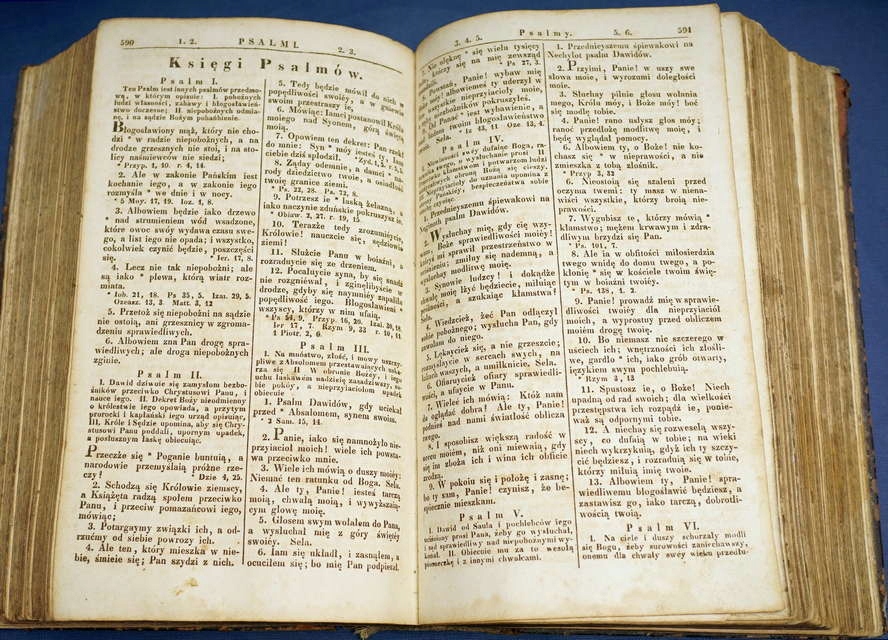 590
1. 2.
PSALMI.
2. 3.
Księgi Psalmów.
Psalm I.
Ten Psalm iest innych psalmów przedmo-
wą, w którym opisuie: I. pobożnych
ludzi własności, zabawy i błogosławień-
stwo duczesne; II. niepobożnych odmia-
nę, i na sądzie Bożym pohańbienie.
Błogosławiony mąż, który nie cho-
dzi * w radzie niepobożnych, a na
drodze grzesznych nie stoi, i na sto-
licy naśmiewców nie siedzi;
* Przyp. 1, 10. r. 4, 14.
2. Ale w zakonie Pańskim iest
kochanie iego, a w zakonie iego
rozmyśla * we dnie i w nocy.
* 5 Moy. 17, 19. Ioz. 1, 8.
3. Albowiem będzie iako drzewo
* nad strumieniem wód wsadzone,
które owoc swóy wydawa czasu swe-
go, a list iego nie opada; i wszystko,
cokolwiek czynić będzie, poszczęści
się.
* Ier. 17, 8.
4. Lecz nie tak niepobożni; ale
są iako * plewa, którą wiatr roz-
miata.
* Iob. 21, 18. Ps 35, 5. Izai. 29, 5.
Ozeasz. 13, 3. Matt. 3, 12
5. Przetoż się niepobożni na sądzie
nie ostoią, ani grzesznicy w zgroma-
dzeniu sprawiedliwych.
6. Albowiem zna Pan drogę spra-
wiedliwych; ale droga niepobożnych
zginie.
Psalm II.
I. Dawid dziwuie się zamysłom bezbo-
żników przeciwko Chrystusowi Panu, i
nauce iego. II. Dekret Boży nieodmienny
o królestwie Iego opowiada, a przytym
prorocki i kapłański iego urząd opisuie,
III, Króle i Sędzie upomina, aby się Chry-
stusowi Panu poddali, upornym upadek,
a posłusznym łaskę obiecuiąc.
Przeczże się * Poganie buntuią, a
narodowie przemyślaią próżne rze-
czy!
Dzie 4, 25.
2. Schodzą się Królowie ziemscy,
a Książęta radzą społem przeciwko
Panu, i przeciw pomazańcowi iego,
mówiąc;
3. Potargaymy związki ich, a od-
rzućmy od siebie powrozy ich.
4. Ale ten, który mieszka w nie-
bie, śmieie się; Pan szydzi z nich.
5. Tedy będzie mówił do nich w
popędliwości swoiéy, a w gniewie
swoim przestraszy ie,
6. Mówiąc: Iamci postanowił Króla
moiego nad Syonem, górą świętą
moią.
7. Opowiem ten dekret: Pan rzekł
do mnie: Syn * móy iesteś ty, Iam
ciebie dziś spłodził.
8. Żąday odemnie, a dam ci na-
rody dziedzictwo twoie, a osiadłość
twoię granice ziemi.
* Ps. 22, 28. Ps. 72, 8.
9. Potrzesz ie * laską żelazną, a
iako naczynie zduńskie pokruszysz ie.
* Obiaw. 2, 27. r. 19, 15.
10. Terazże tedy zrozumieycie,
Królowie! nauczcie się, sędziowie
ziemi!
11. Służcie Panu w boiaźni, a
rozraduycie się ze drżeniem.
12. Pocałuycie syna, by się snadź
nie rozgniewał, i zginęlibyście w
drodze, gdyby się naymniéy zapaliła
popędliwość iego. Błogosławieni *
wszyscy, którzy w nim ufaią.
* Ps 54, 9. Przyp. 16, 20. Izai. 20, 18.
Ier 17, 7. Rzym 9, 33 r. 10, 11.
1 Piotr. 2, 6.
Psalm III.
I. Na mnóstwo, złość, i mowy uszczy-
pliwe z Absolomem przestawaiących uska-
rża się II W obronie Bożéy, i iego
uchu łaskawém nadzieię zasadziwszy, so-
bie pokóy, a nieprzyiaciołom upadek
obiecuie
1. Psalm Dawidów, gdy uciekał
przed * Absalomem, synem swoim.
* 2 Sam. 15, 14.
2. Panie, iako się namnożyło nie-
przyiaciół moich! wiele ich powsta-
wa przeciwko mnie.
3. Wiele ich mówią o duszy moiéy:
Niemać ten ratunku od Boga. Sela.
4. Ale ty, Panie! iesteś tarczą
moią, chwałą moią, i wywyższaią-
cym głowę moię.
5. Głosem swym wołałem do Pana,
a wysłuchał mię z góry świętéy
swoiéy. Sela.
6. Iam się układł, i zasnąłem, a
ocuciłem się; bo mię Pan podpierał.
3. 4. 5.
Psalmy.
5. 6.
591
7. Nie ulęknę * się wiela tysięcy
którzy się na mię zewsząd
* Ps 27, 3.
Powstań, Panie! wybaw mię
móy! albowiemeś ty uderzył w
wszystkie nieprzyiacioły moie,
niezbożników pokruszyłeś.
Od Panać * iest wybawienie, a
ludem twoim błogosławieństwo
Sela.
* Iz 43, 11 Oze 13, 4.
Psalm IV.
1. Przednieyszemu śpiewakowi na
Neginoth psalm Dawidów.
2. Wysłuchay mię, gdy cię wzy-
wam, Boże sprawiedliwości moiéy!
mi sprawił przestrzeństwo w
uciśnieniu: zmiłuy się nademną, a
wysłuchay modlitwę moię.
3. Synowie ludzcy! i dokądże
chwałę moię lżyć będziecie, miłuiąc
próżności, a szukaiąc kłamstwa!
Sela.
4. Wiedzcież, żeć Pan odłączył
sobie pobożnego; wysłucha Pan, gdy
zawołam do niego.
5. Lękaycież się, a nie grzeszcie;
rozmyślaycie w sercach swych, na
łożkach waszych, a umilknicie. Sela.
6. Ofiaruycież ofiary sprawiedli-
wości, a ufaycie w Panu.
7. Wiele ich mówi: Któż nam
da oglądać dobra! Ale ty, Panie!
podnieś nad nami światłość oblicza
twego.
8. I sposobisz większą radość w
sercu moiém, niż oni miewaią, gdy
się im zboża ich i wina ich obficie
zrodzą.
9. W pokoiu się i położę i zasnę;
bo ty sam, Panie! czynisz, że be-
spiecznie mieszkam.
Psalm V.
I. Dawid od Saula i pochlebców iego
uciśniony prosi Pana, żeby go wysłuchał,
i sąd sprawiedliwy nad niepobożnymi wy-
konał. II. Obiecuie mu za to wesołą
piosneczkę i z innymi chwałcami.
1. Przednieyszemu śpiewakowi na
Nechylot psalm Dawidów.
2. Przyimi, Panie! w uszy swe
słowa moie, i wyrozumi doległości
moie.
3. Słuchay pilnie głosu wołania
mego, Królu móy, i Boże móy! boć
się modlę tobie.
4. Panie! rano usłysz głos móy;
ranoć przedłożę modlitwę moię, i
będę wyglądał pomocy.
5. Albowiem ty, o Boże! nie ko-
chasz się * w nieprawości, a nie
zmieszka z tobą złośnik.
* Przyp 3, 32
6. Nieostoią się szaleni przed
oczyma twemi: ty masz w niena-
wiści wszystkie, którzy broią nie-
prawości.
7. Wygubisz te, którzy mówią *
kłamstwo; mężem krwawym i zdra-
dliwym brzydzi się Pan.
* Ps. 101, 7.
8. Ale ia w obfitości miłosierdzia
twego wnidę do domu twego, a po-
kłonię * się w kościele twoim świę-
tym w boiaźni twoiéy.
* Ps. 138, 1, 2.
9. Panie! prowadź mię w sprawie-
dliwości twoiéy dla nieprzyiaciół
moich, a wyprostuy przed obliczem
moiém drogę twoię;
10. Bo niemasz nic szczerego w
uściech ich; wnętrzności ich złośli-
we, gardło * ich, iako grób otwarty,
ięzykiem swym pochlebuią.
* Rzym 3, 13
11. Spustosz ie, o Boże! Niech
upadną od rad swoich; dla wielkości
przestępstwa ich rozpądź ie, ponie-
waż są odpornymi tobie.
12. A niechay się rozweselą wszy-
scy, co dufaią w tobie; na wieki
niech wykrzykuią, gdyż ich ty szczy-
cić będziesz, i rozraduią się w tobie,
którzy miłuią imię twoie.
13. Albowiem ty, Panie! spra-
wiedliwemu błogosławić będziesz, a
zastawisz go, iako tarczą, dobrotli-
wością twoią.
Psalm VI.
I. Na ciele i duszy schorzały modli
się Bogu, żeby surowości zaniechawszy,
onemu dla chwały swéy wieku przedłu-